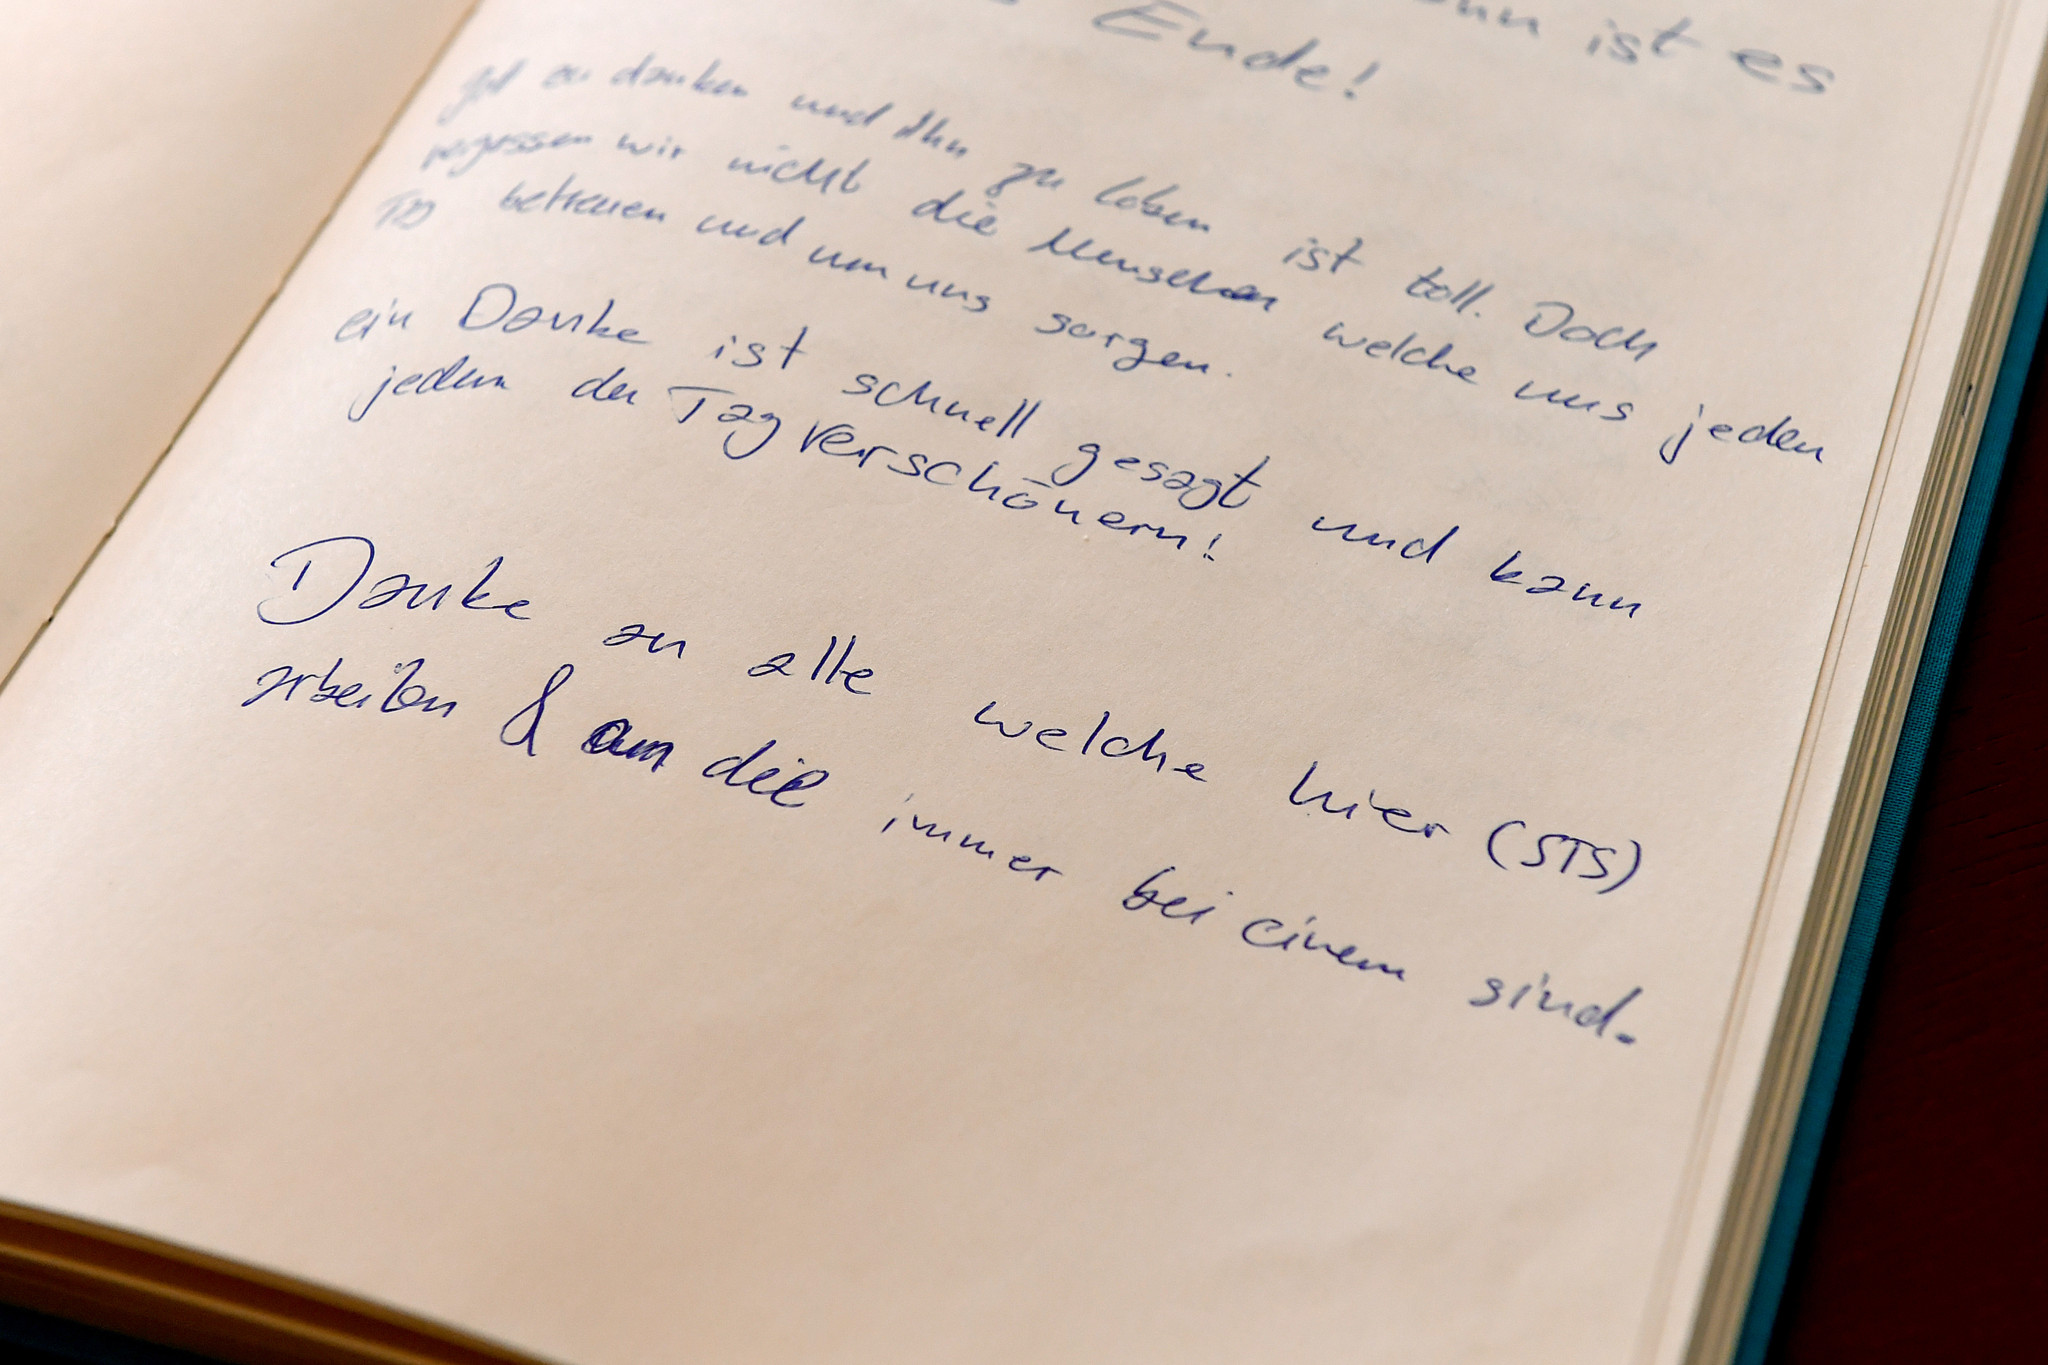 ist es
Ende!
Got zu danken und Ihn zu loben ist toll. Doch
vergessen wir nicht die Menschen welche uns jeden
Tag betreuen und um uns sorgen.
ein Danke ist schnell gesagt und kann
jedem der Tag verschönern!
Danke an alle welche hier (STS)
arbeiten & an die immer bei einem sind.